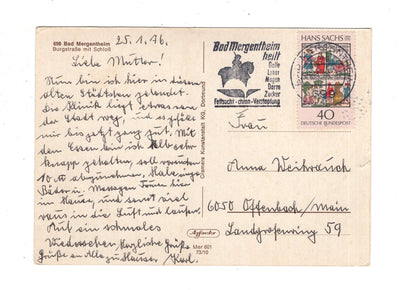 6990 Bad Mergentheim
Burgstraße mit Schloß
25.1.76.
Liebe Mutter!
Nun bin ich hier in diesem
alten Städtchen gelandet.
Die Klinik liegt etwas von
der Stadt weg, und es gefällt
mir bis jetzt ganz gut. Mit
dem Essen bin ich sehr
knapp gehalten, soll
10 abzunehmen. Habe
Bäder u. Massagen
im Hause, und sonst viel
raus in die Luft und laufen.
Auf ein schmales
Wiedersehen, herzliche Grüße
Grüße an Alle zu Hause, Karl.
Cramers Kunstanstalt KG, Dortmund
Mer 601
73/10
Bad Mergentheim
heilt
Galle
Leber
Magen
Darm
Zucker
Fettsucht - chron. Verstopfung
HANS SACHS
40
DEUTSCHE BUNDESPOST
Frau
Anna Weihrauch
6050 Offenbach/Main
Landgrafenring 59